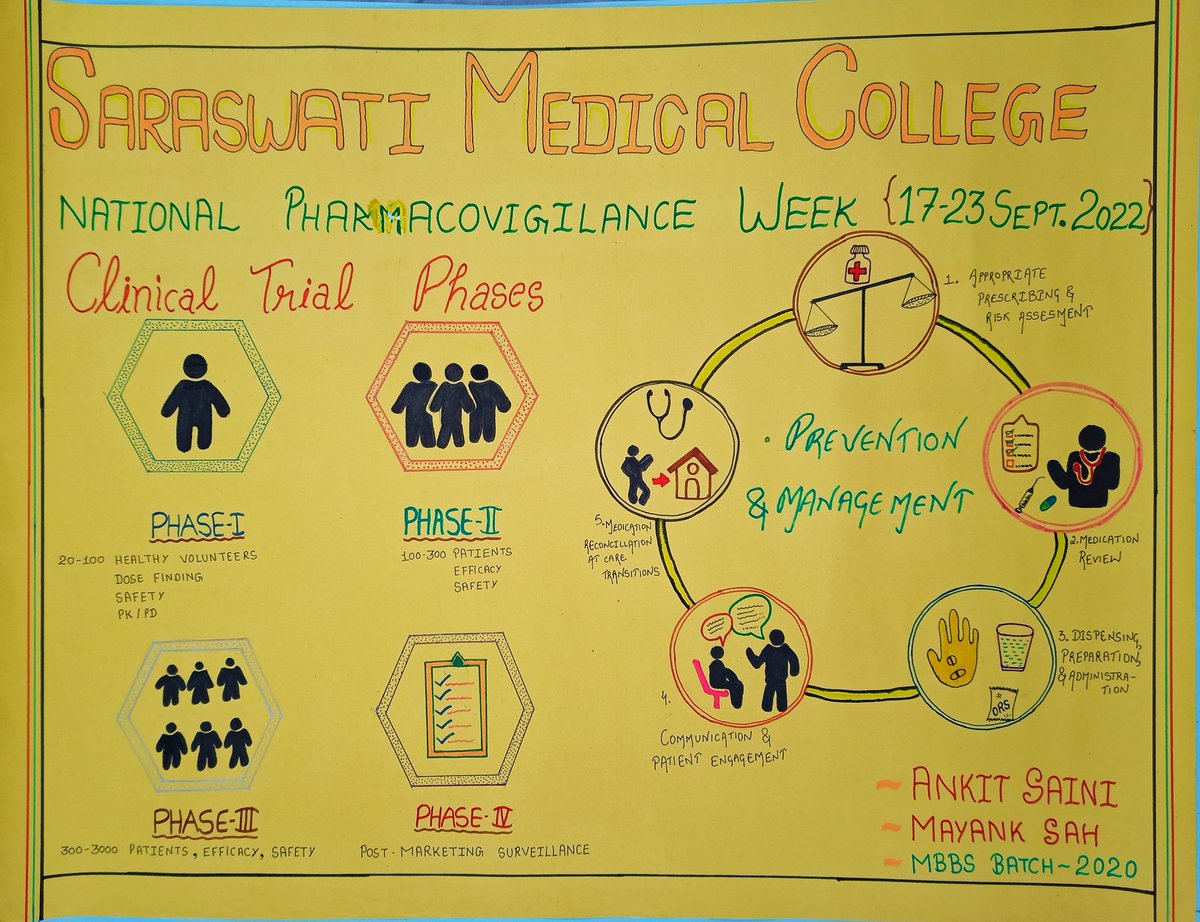 SARASWATI MEDICAL COLLEGE
NATIONAL PHARMACOVIGILANCE WEEK {17-23 SEPT. 2022}
Clinical Trial Phases
PHASE-I
20-100 HEALTHY VOLUNTEERS
DOSE FINDING
SAFETY
PK/PD
PHASE-II
100-300 PATIENTS
EFFICACY
SAFETY
PHASE-III
300-3000 PATIENTS, EFFICACY, SAFETY
PHASE-IV
POST-MARKETING SURVEILLANCE
· PREVENTION
& MANAGEMENT
1. APPROPRIATE
PRESCRIBING &
RISK ASSESMENT
2. MEDICATION
REVIEW
3. DISPENSING,
PREPARATION,
& ADMINISTRA-
TION
ORS
4.
COMMUNICATION &
PATIENT ENGAGEMENT
5. MEDICATION
RECONCILLATION
AT CARE
TRANSITIONS
~ ANKIT SAINI
~ MAYANK SAH
~ MBBS BATCH~2020